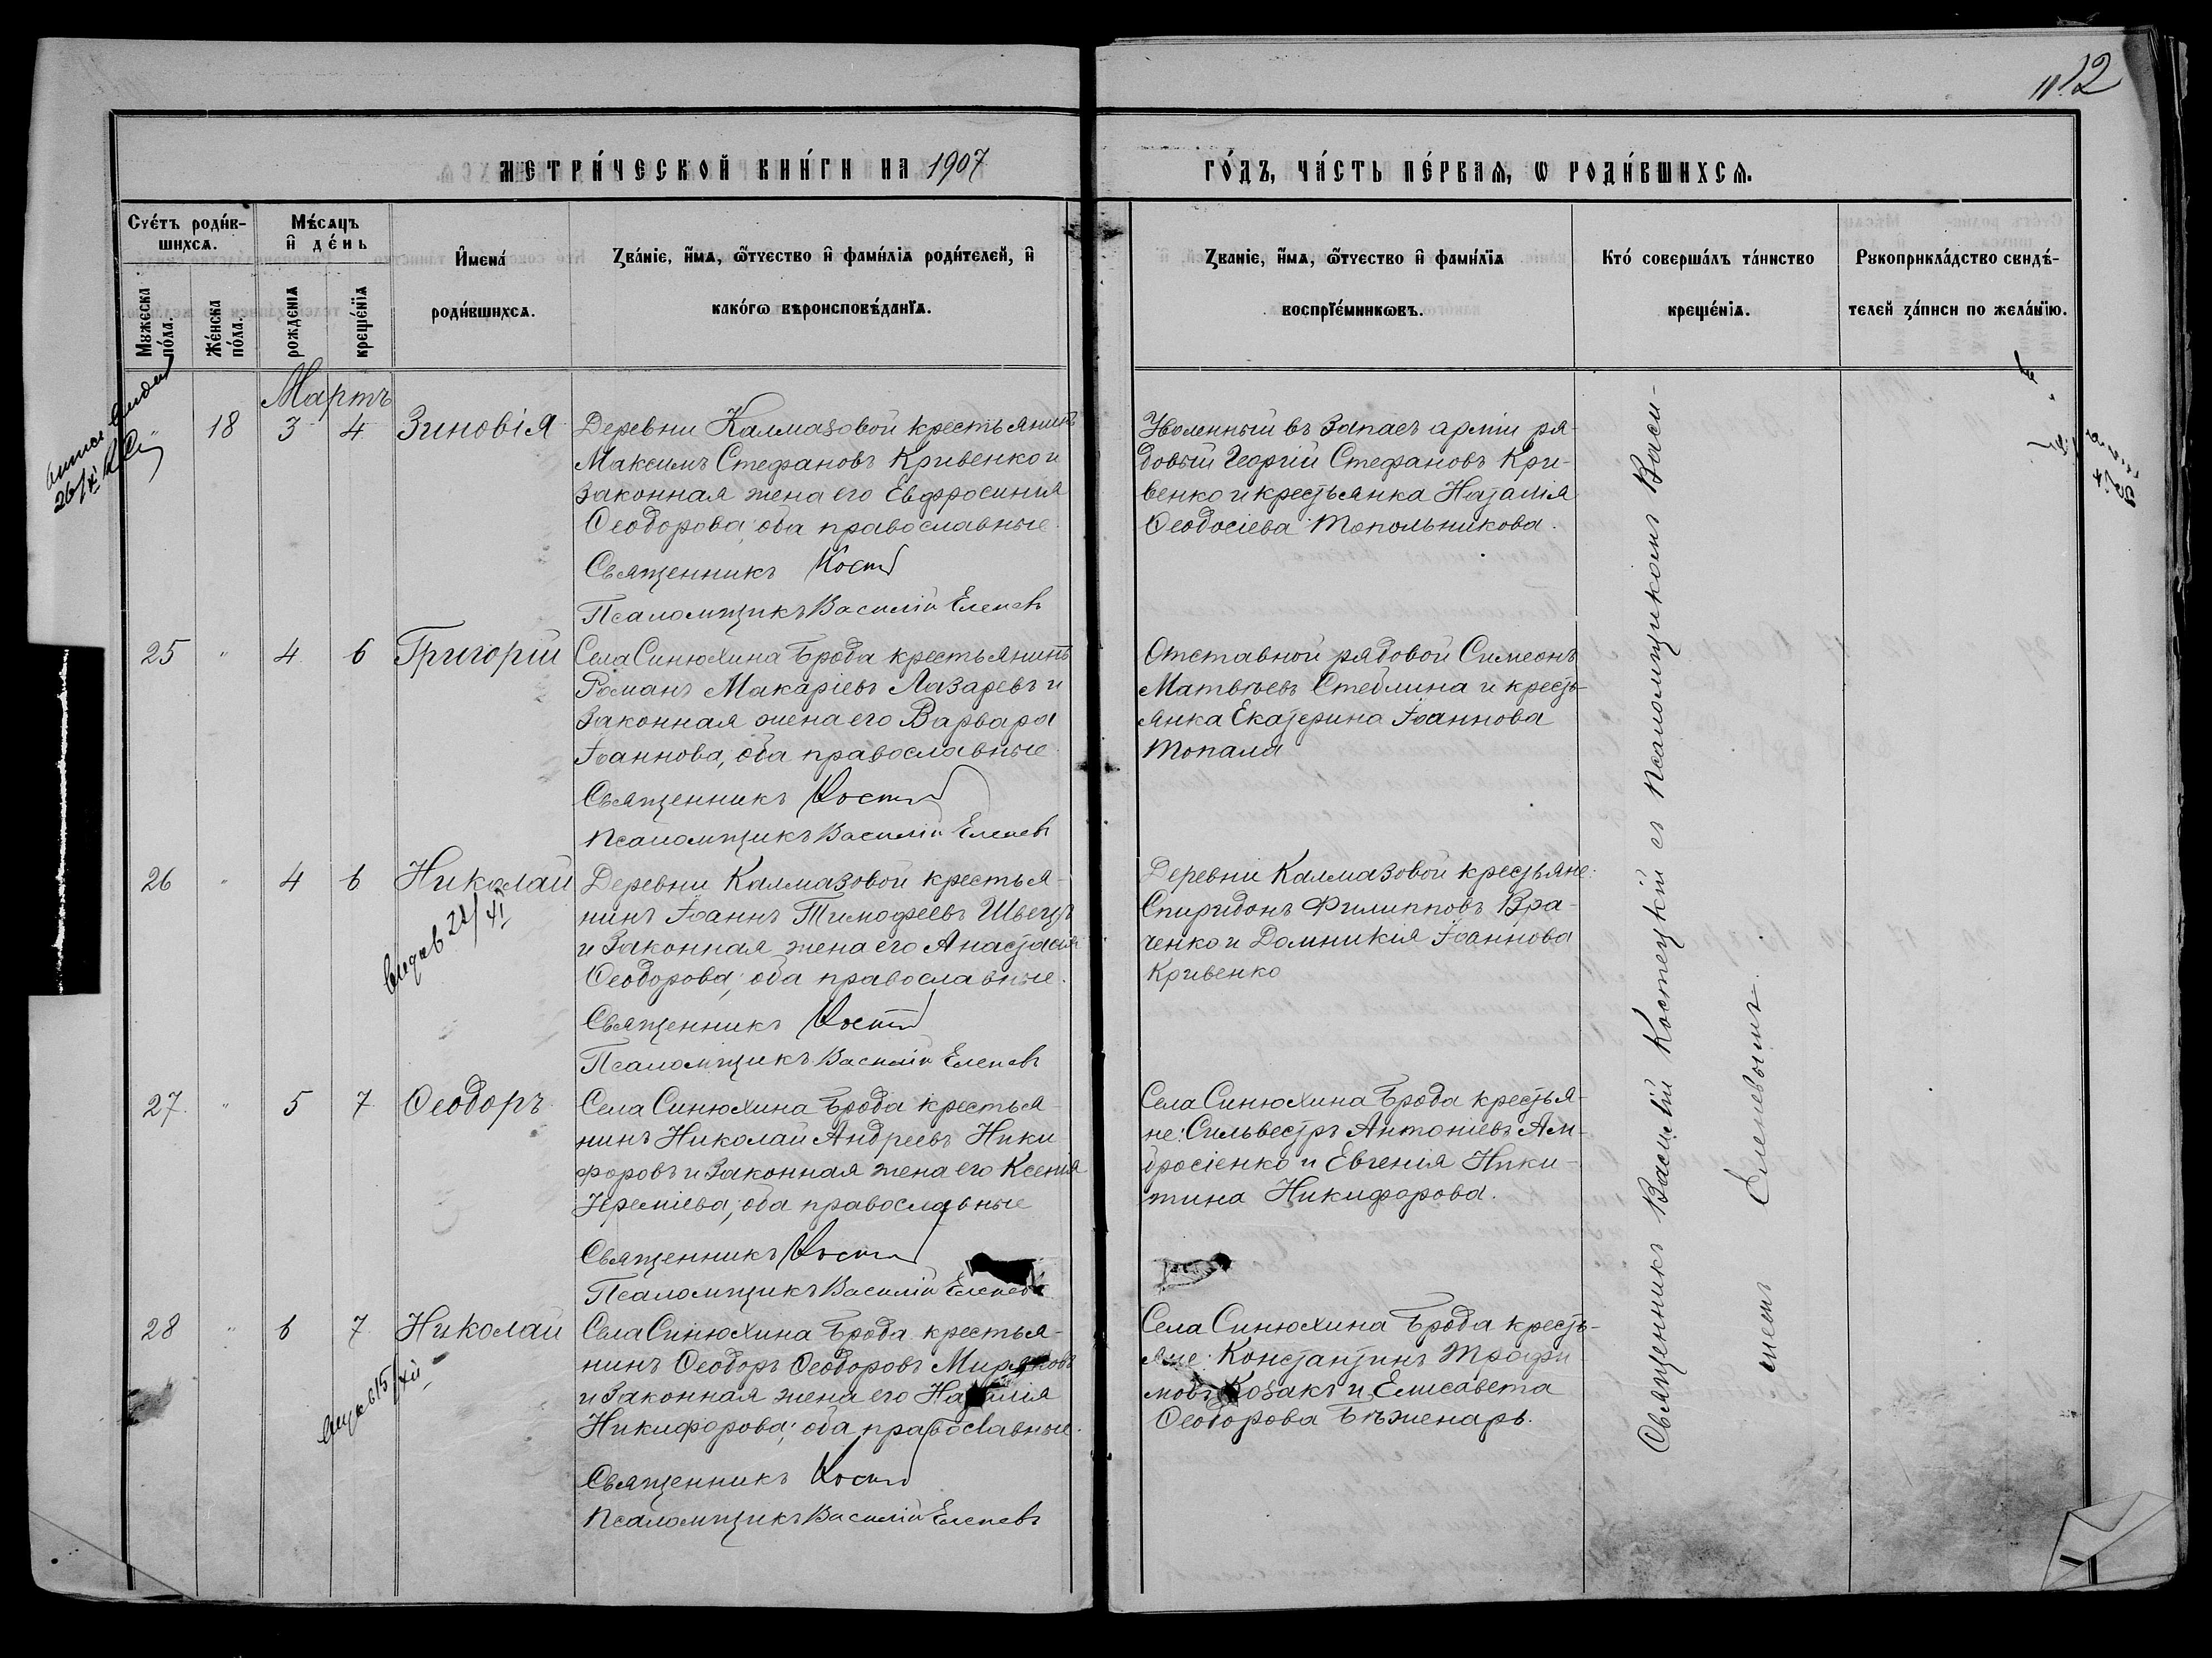 12
МЕТРИ́ЧЕСКОЙ КНИ́ГИ НА 1907
ГО́ДЪ, ЧА́СТЬ ПЕ́РВАѦ, Ѡ РОДИ́ВШИХСѦ.
Сче́тъ роди́в-
шихсѧ.
Мꙋжеска по́ла.
Же́нска по́ла.
Мѣ́сѧцъ
и҆ де́нь
рожденїѧ
креще́нїѧ
И҆мена́
роди́вшихсѧ.
Зва́нїе, и҆́мѧ, ѻ҆́тчество и҆ фами́лїѧ роди́телей, и҆
како́гѡ вѣроисповѣ́данїѧ.
Званїе, и҆́мѧ, ѻ҆́тчество и҆ фами́лїѧ
воспрїе́мникѡвъ.
Кто́ соверша́лъ та́инство
креще́нїѧ.
Рꙋкоприкла́дство свидѣ́-
телей за́писи по жела́нїю.
Мартъ
" 18 3 4 Зиновія
Деревни Калмазовой крестьянинъ
Максимъ Стефановъ Кривенко и
законная жена его Евфросинія
Ѳеодорова; оба православные.
Священникъ Кост
Псаломщикъ Василій Елепевъ
Уволенный въ запасъ арміи ря-
довый Георгій Стефановъ Кри-
венко и крестьянка Наталія
Ѳеодосіева Топольникова.
25 " 4 6 Григорій
Села Синюхина Брода крестьянинъ
Романъ Макаріевъ Лазаревъ и
законная жена его Варвара
Іоаннова, оба православные.
Священникъ Кост
Псаломщикъ Василій Елепевъ
Отставной рядовой Симеонъ
Матвѣевъ Стеблина и кресть-
янка Екатерина Іоаннова
Топала
26 " 4 6 Николай
Деревни Калмазовой крестья-
нинъ Іоаннъ Тимофеевъ Швецъ
и законная жена его Анастасія
Ѳеодорова; оба православные.
Священникъ Кост
Псаломщикъ Василій Елепевъ
Деревни Калмазовой крестьяне:
Спиридонъ Филипповъ Вра-
ченко и Домникія Іоаннова
Кривенко
27. " 5 7 Ѳеодоръ
Села Синюхина Брода крестья-
нинъ Николай Андреевъ Ники-
форовъ и законная жена его Ксенія
Іереміева; оба православные
Священникъ Кост
Псаломщикъ Василій Елепевъ
Села Синюхина Брода крестья-
не: Сильвестръ Антоніевъ Ам-
бросіенко и Евгенія Ники-
тина Никифорова.
28 " 6 7 Николай
Села Синюхина Брода крестья-
нинъ Ѳеодоръ Ѳеодоровъ
и законная жена его Наталія
Никифорова; оба православные.
Священникъ Кост
Псаломщикъ Василій Елепевъ
Села Синюхина Брода кресть-
яне: Константинъ Трофи-
мовъ Козакъ и Елисавета
Ѳеодорова Бѣженарь.
Священникъ Василій Костецкій съ псаломщикомъ Васи-
ліемъ Елепевымъ.